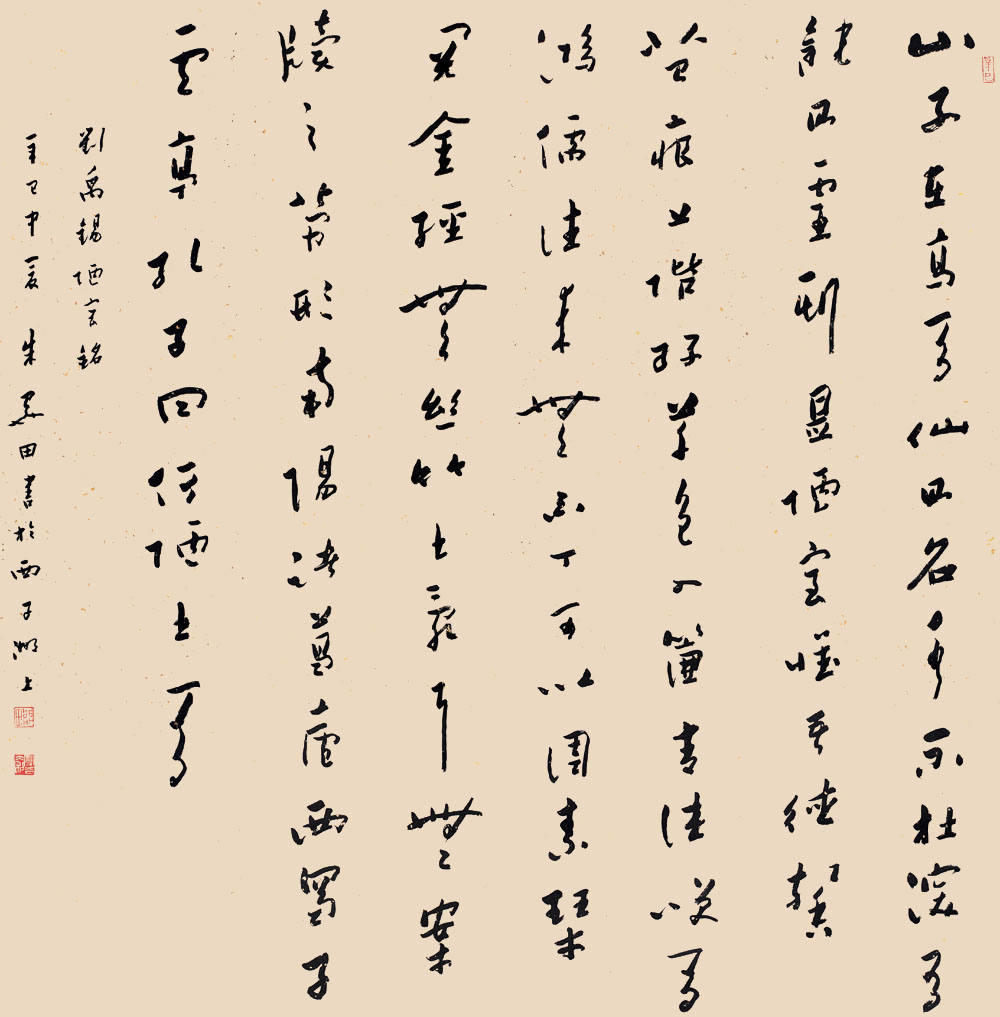 山不在高有仙則名水不在深有
龍則靈斯是陋室惟吾德馨
苔痕上階綠草色入簾青談笑有
鴻儒往來無白丁可以調素琴
閱金經無絲竹之亂耳無案
牘之勞形南陽諸葛廬西蜀子
雲亭孔子曰何陋之有
劉禹錫陋室銘
辛巳中夏 朱關田書於西子湖上